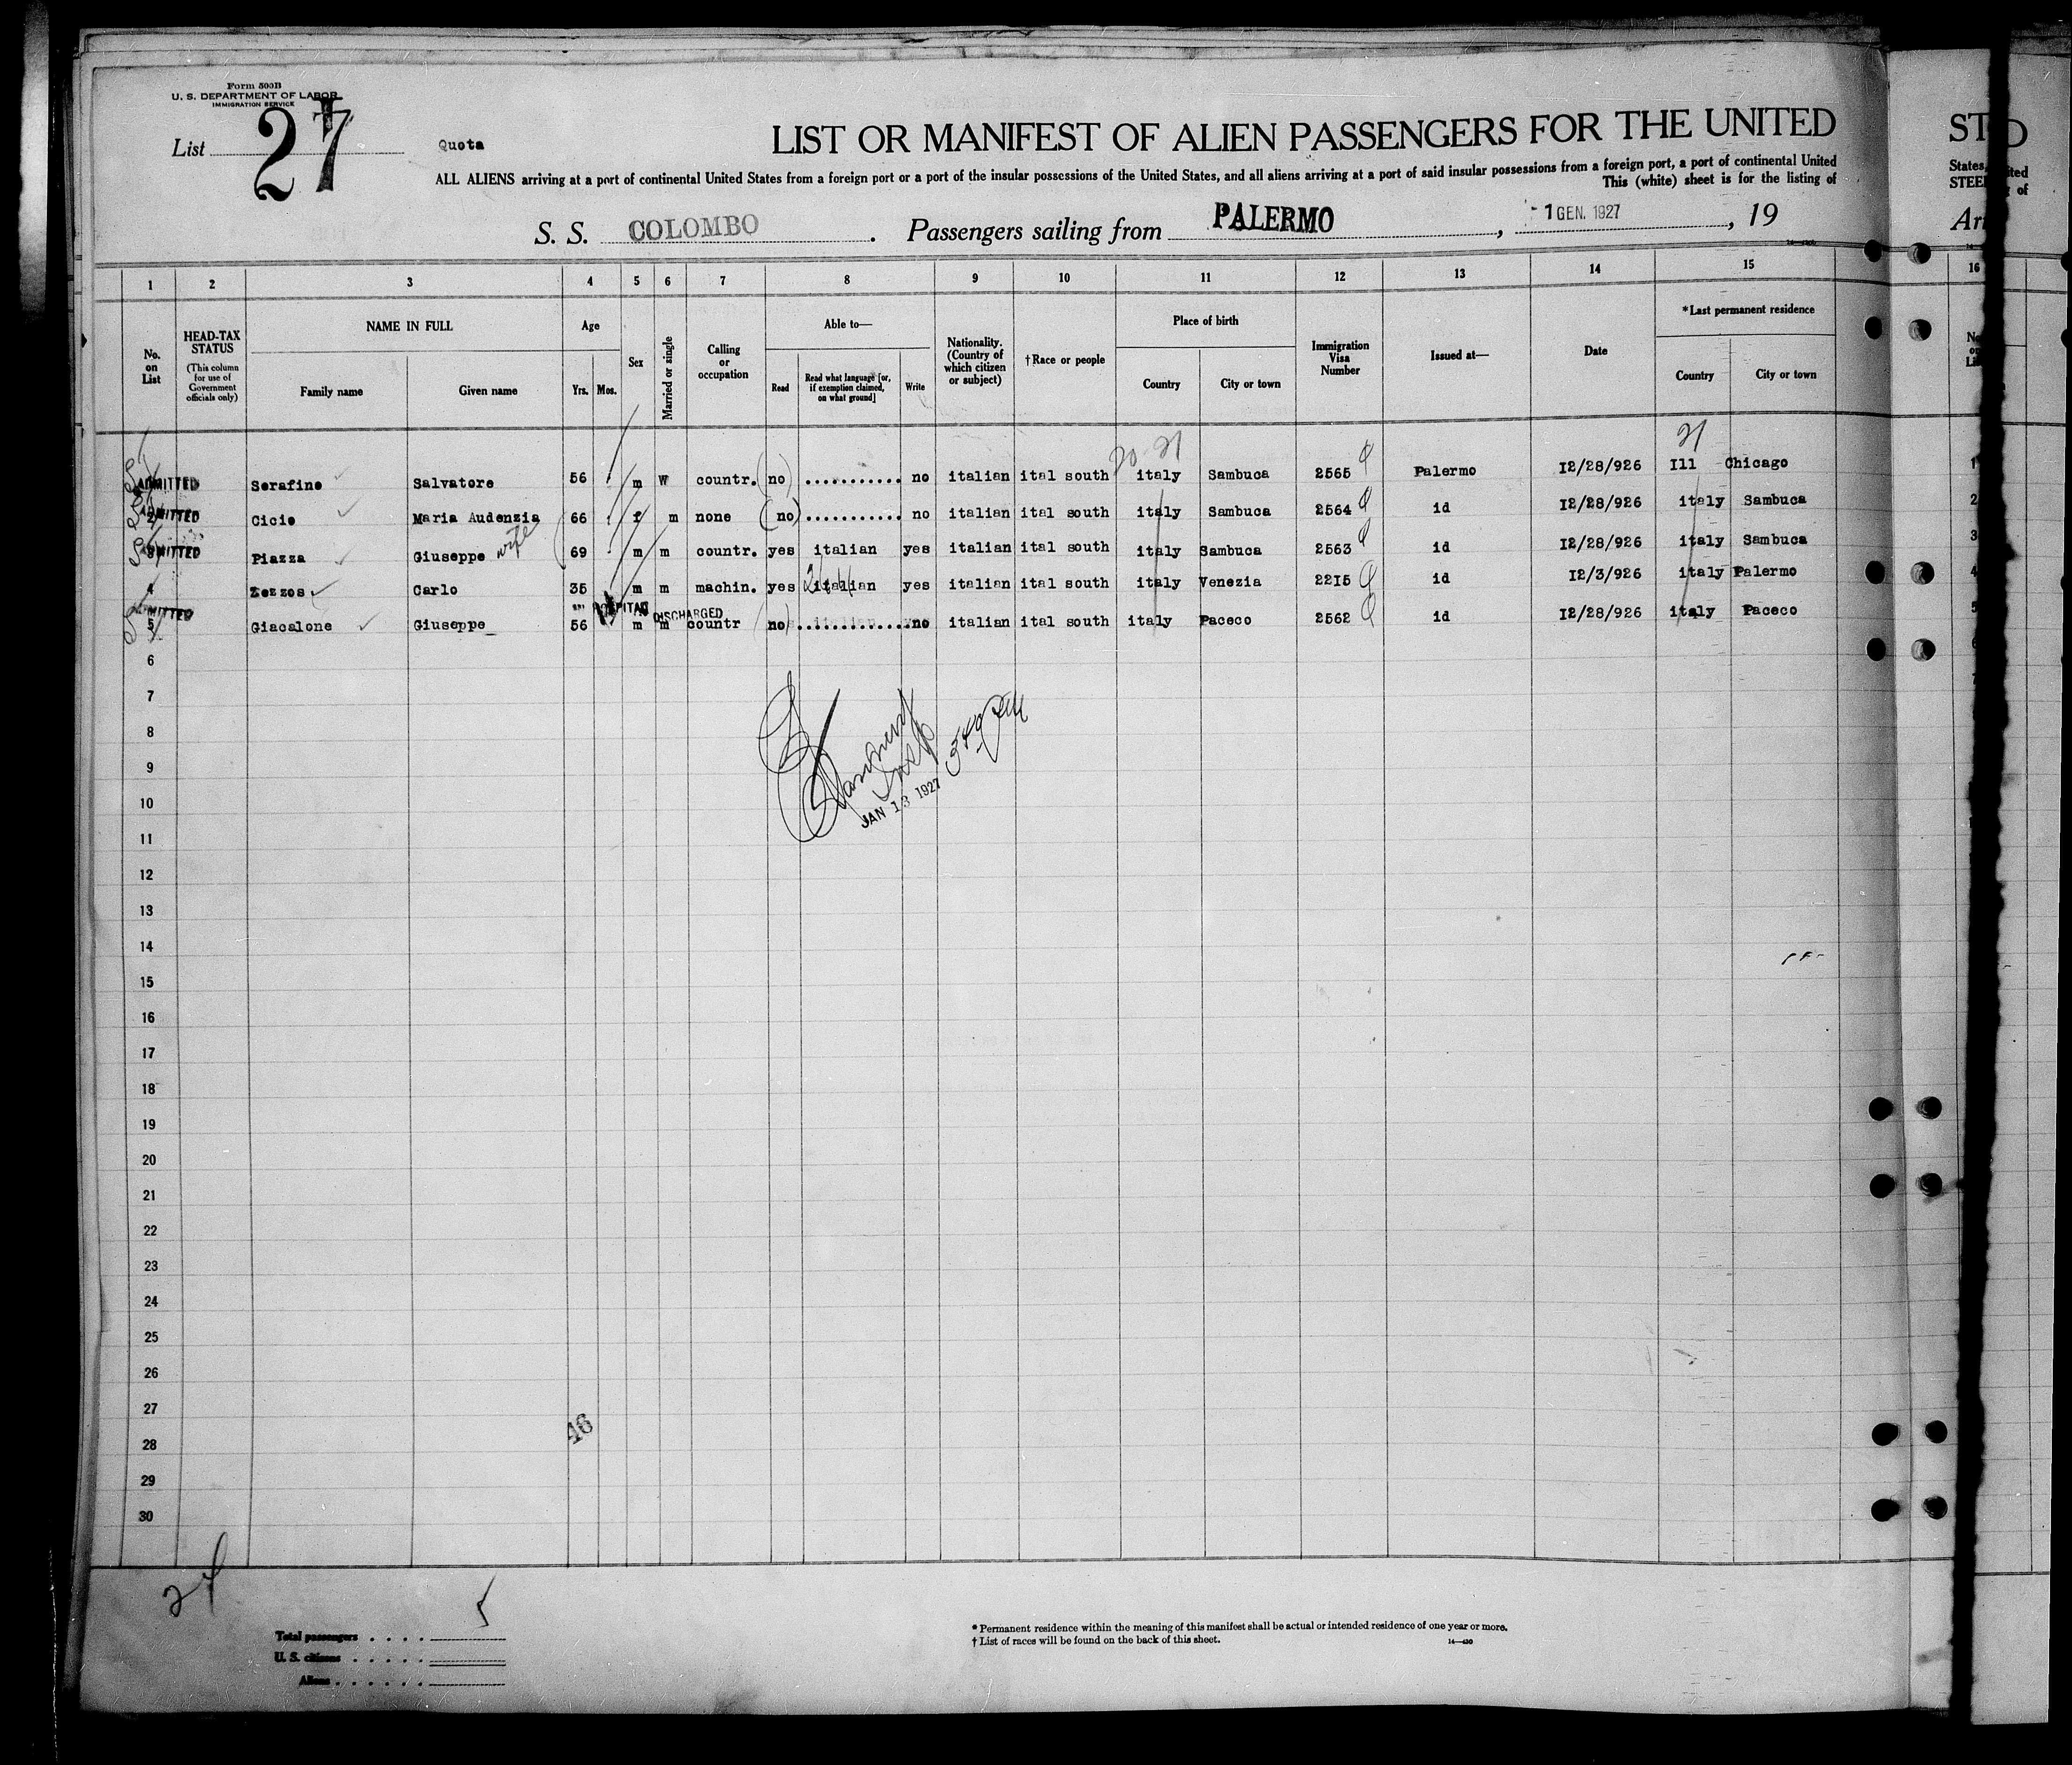 Form 500B
U. S. DEPARTMENT OF LABOR
IMMIGRATION SERVICE
List 27
Quota
LIST OR MANIFEST OF ALIEN PASSENGERS FOR THE UNITED
ALL ALIENS arriving at a port of continental United States from a foreign port or a port of the insular possessions of the United States, and all aliens arriving at a port of said insular possessions from a foreign port, a port of continental United
This (white) sheet is for the listing of
S. S. COLOMBO. Passengers sailing from PALERMO, 1 GEN. 1927, 19
ST
States,
STEE
Arr
1 2 3 4 5 6 7 8 9 10 11 12 13 14 15 16
No. on List
HEAD-TAX STATUS
(This column for use of Government officials only)
NAME IN FULL
Family name Given name
Age
Yrs. Mos.
Sex
Married or single
Calling or occupation
Able to—
Read Read what language [or, if exemption claimed, on what ground] Write
Nationality. (Country of which citizen or subject)
†Race or people
Place of birth
Country City or town
Immigration Visa Number
Issued at—
Date
*Last permanent residence
Country City or town
20 21 21
ADMITTED Serafino Salvatore 56 m W countr. no ........... no italian ital south italy Sambuca 2565 Palermo 12/28/926 Ill Chicago 1
ADMITTED 2 Cicio Maria Audenzia 66 f m none no ........... no italian ital south italy Sambuca 2564 id 12/28/926 italy Sambuca 2
wife
ADMITTED 3 Piazza Giuseppe 69 m m countr. yes italian yes italian ital south italy Sambuca 2563 id 12/28/926 italy Sambuca 3
4 Zezzos Carlo 35 m m machin. yes italian yes italian ital south italy Venezia 2215 id 12/3/926 italy Palermo 4
HOSPITAL DISCHARGED
ADMITTED 5 Giacalone Giuseppe 56 m m countr no ............ no italian ital south italy Paceco 2562 id 12/28/926 italy Paceco 5
6
7
8
9
10
11
12
13
14
15
16
17
18
19
20
21
22
23
24
25
26
27
28
29
30
Insp
JAN 13 1927
46
24
5
Total passengers . . . .
U. S. citizens . . . . .
Aliens . . . . . .
* Permanent residence within the meaning of this manifest shall be actual or intended residence of one year or more.
† List of races will be found on the back of this sheet.
14—430